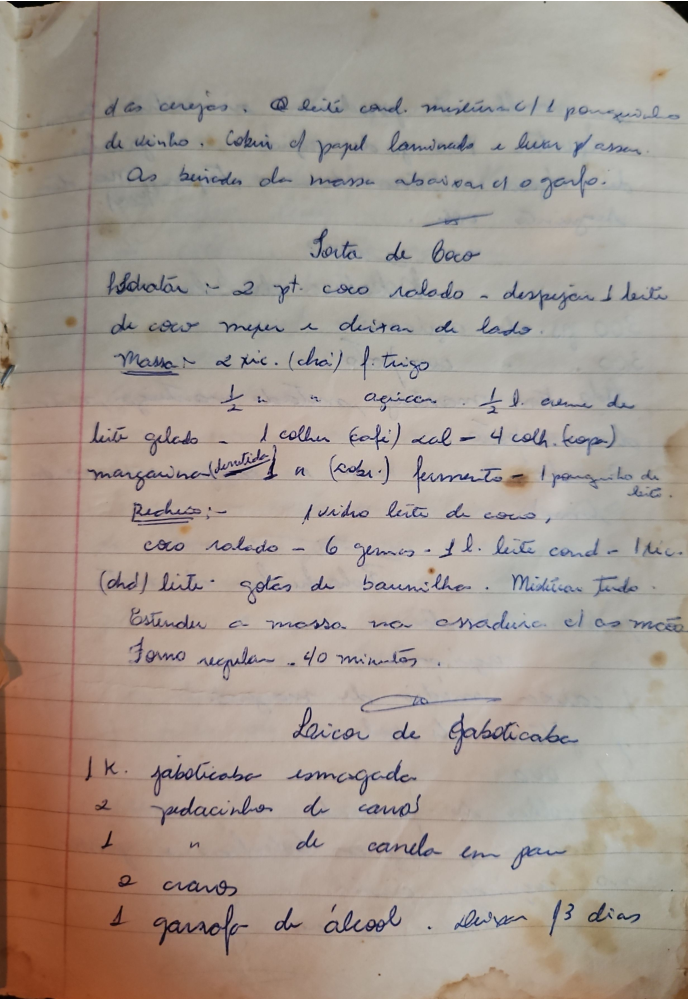 das cerejas. O leite cond. mistura c/ 1 pouquinho
de vinho. Cobrir c/ papel laminado e levar p/ assar.
As beiradas da massa abaixar c/ o garfo.
Torta de Coco
Hidratar :- 2 pt. coco ralado - despejar 1 leite
de coco mexer e deixar de lado.
Massa :- 2 xic. (chá) f. trigo
1/2 " " açúcar. 1/2 l. creme de
leite gelado - 1 colher (café) sal - 4 colh. (sopa)
margarina (derretida) 1 " (sobr.) fermento - 1 pouquinho de
leite.
Recheio :- 1 vidro leite de coco,
coco ralado - 6 gemas - 1 l. leite cond - 1 xic.
(chá) leite - gotas de baunilha. Misturar tudo.
Estender a massa na assadeira c/ as mãos
Forno regular - 40 minutos.
Licor de Jaboticaba
1 K. jaboticaba esmagada
2 pedacinhos de
1 " de canela em pau
2 cravos
1 garrafa de álcool. Deixar 13 dias